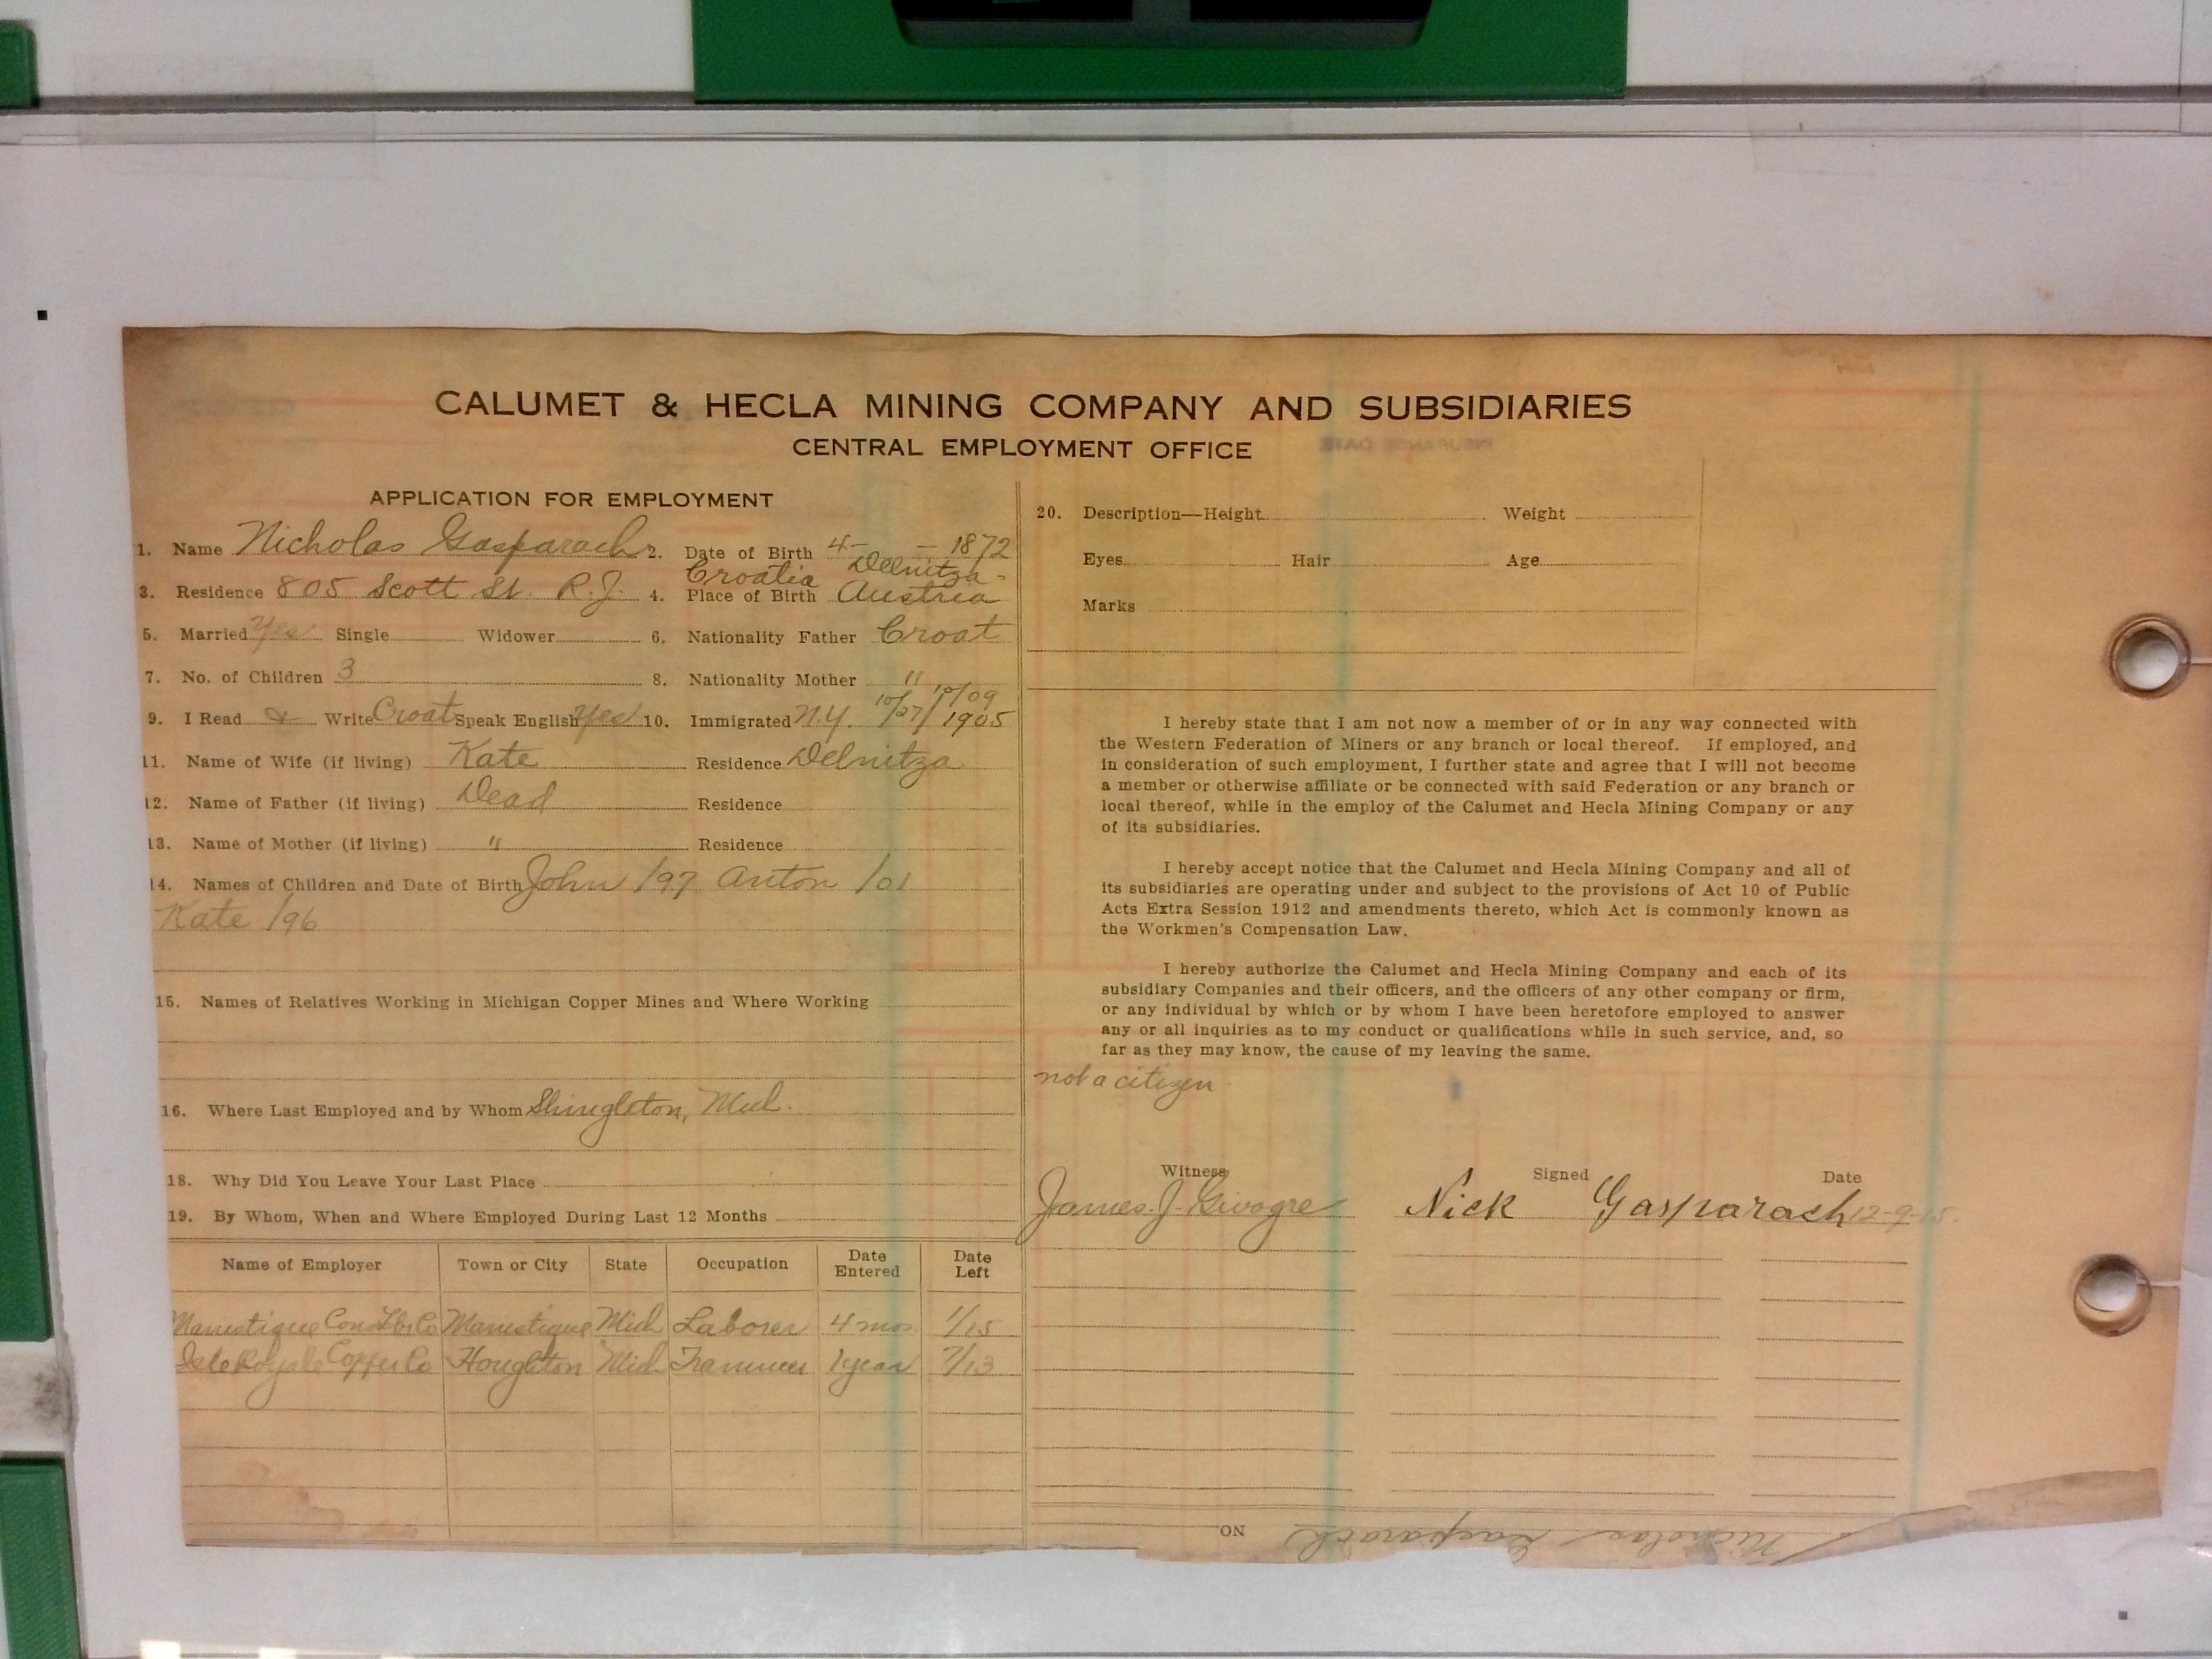 CALUMET & HECLA MINING COMPANY AND SUBSIDIARIES
CENTRAL EMPLOYMENT OFFICE
INSURANCE DATE
APPLICATION FOR EMPLOYMENT
1. Name Nicholas Gasparach 2. Date of Birth 4- - 1872
Croatia Delnitza-
3. Residence 805 Scott St. R.J. 4. Place of Birth Austria
5. Married Yes Single Widower 6. Nationality Father Croat
7. No. of Children 3 8. Nationality Mother "
10/09
9. I Read & Write Croat Speak English Yes 10. Immigrated N.Y. 10/27/1905
11. Name of Wife (if living) Kate Residence Delnitza
12. Name of Father (if living) Dead Residence
13. Name of Mother (if living) " Residence
14. Names of Children and Date of Birth John /97 Anton /01
Kate /96
15. Names of Relatives Working in Michigan Copper Mines and Where Working
16. Where Last Employed and by Whom Shingleton, Mich.
18. Why Did You Leave Your Last Place
19. By Whom, When and Where Employed During Last 12 Months
Name of Employer Town or City State Occupation Date Entered Date Left
Manistique Manistique Mich Laborer 4 mos. 1/15
Isle Royale Copper Co Houghton Mich Trammer 1 year 7/13
20. Description—Height Weight
Eyes Hair Age
Marks
I hereby state that I am not now a member of or in any way connected with
the Western Federation of Miners or any branch or local thereof. If employed, and
in consideration of such employment, I further state and agree that I will not become
a member or otherwise affiliate or be connected with said Federation or any branch or
local thereof, while in the employ of the Calumet and Hecla Mining Company or any
of its subsidiaries.
I hereby accept notice that the Calumet and Hecla Mining Company and all of
its subsidiaries are operating under and subject to the provisions of Act 10 of Public
Acts Extra Session 1912 and amendments thereto, which Act is commonly known as
the Workmen's Compensation Law.
I hereby authorize the Calumet and Hecla Mining Company and each of its
subsidiary Companies and their officers, and the officers of any other company or firm,
or any individual by which or by whom I have been heretofore employed to answer
any or all inquiries as to my conduct or qualifications while in such service, and, so
far as they may know, the cause of my leaving the same.
not a citizen
Witness Signed Date
James. J. Nick Gasparach 12-9-15.
NO. Nicholas Gasparach